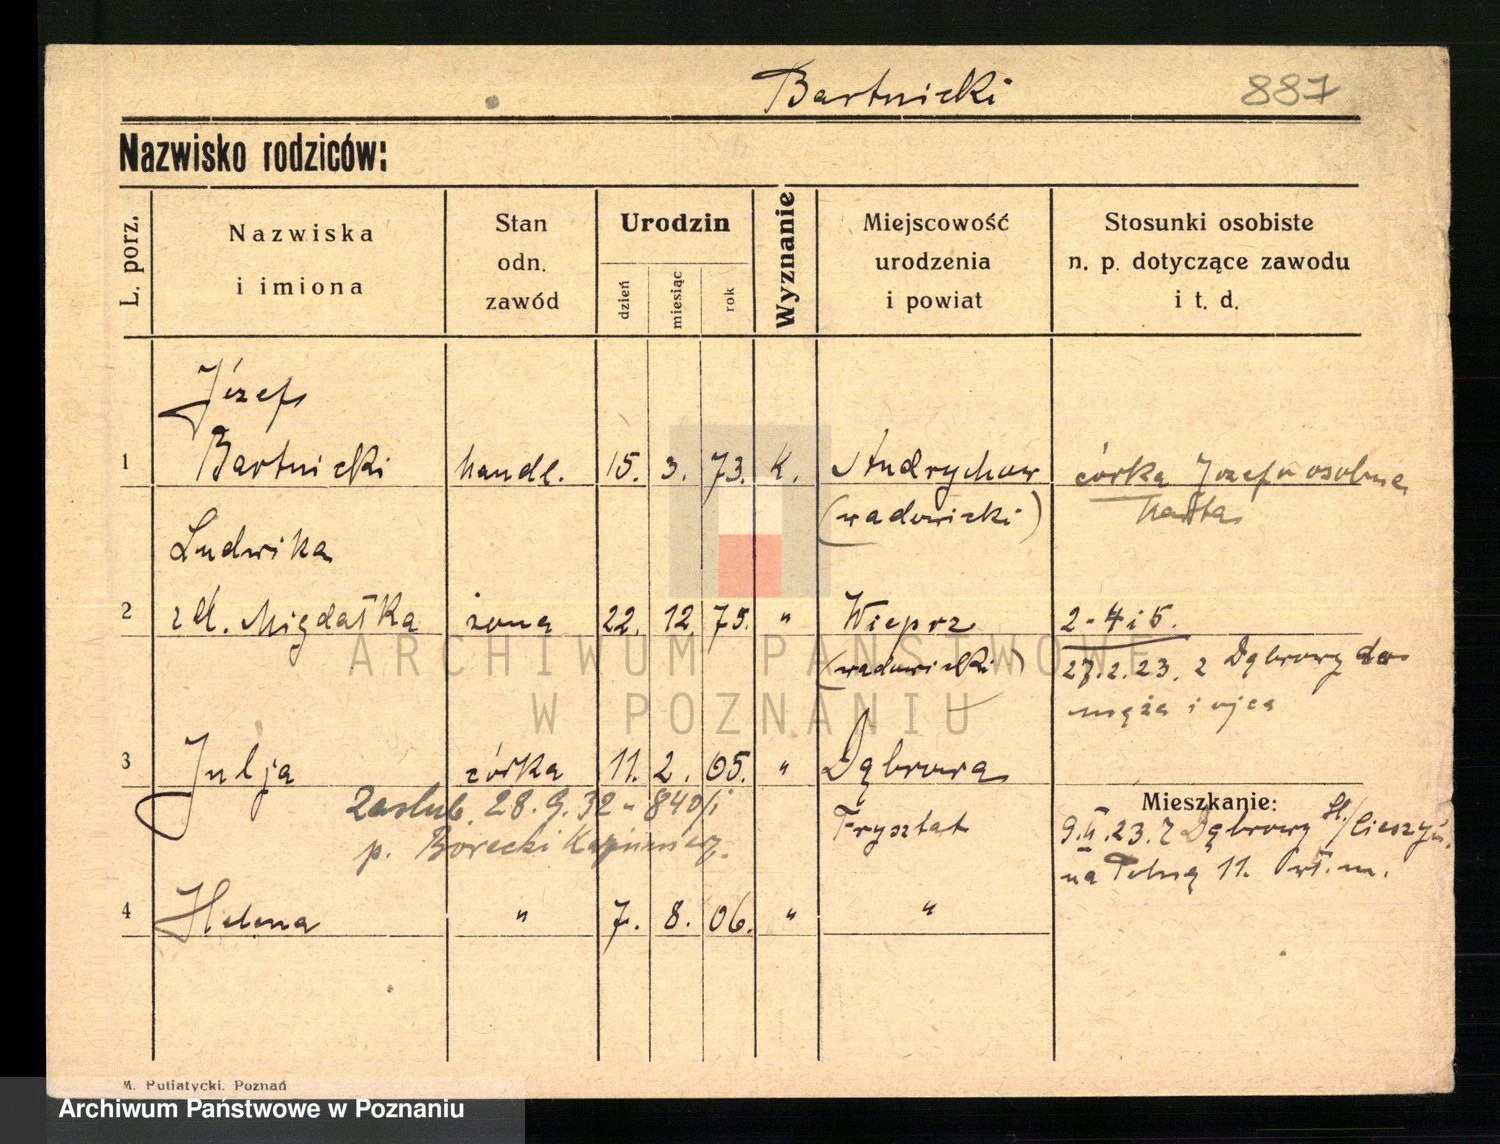 Bartnicki 887
Nazwisko rodziców:
L. porz.
Nazwiska
i imiona
Stan
odn.
zawód
Urodzin
dzień
miesiąc
rok
Wyznanie
Miejscowość
urodzenia
i powiat
Stosunki osobiste
n. p. dotyczące zawodu
i t. d.
Józef
1 Bartnicki handl. 15. 3. 73. K. Andrychow córka Josefa osobna
(wadowicki) karta
Ludwika
2 z d. Migdałka żona 22. 12. 75. " Wieprz 2-4 i 5.
(wadowicki) 27.2.23. z Dąbrowy do
męża i ojca
3 Julja córka 11. 2. 05. " Dąbrowa
Zaslub. 28.9.32 - 840/i
p. Borecki Kazimierz.
Frysztat
Mieszkanie:
9.II.23. z Dąbrowy Śl./Cieszyń.
na Polną 11. wł. m.
4 Helena " 7. 8. 06. " "
M. Putiatycki, Poznań
ARCHIWUM PAŃSTWOWE
W POZNANIU
Archiwum Państwowe w Poznaniu